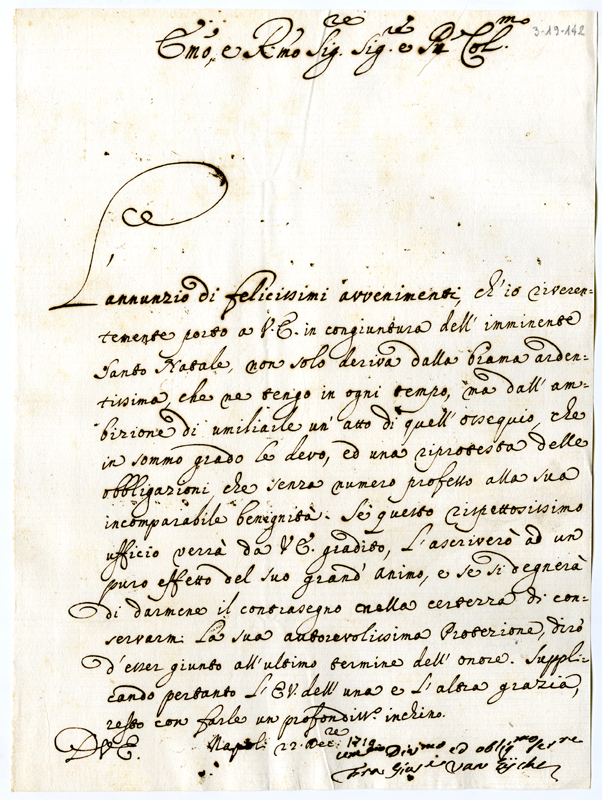 3-19-142
Emo, e Rmo Sig.re Sig.re e Pn Col.mo
L'annunzio di felicissimi avvenimenti, ch'io riveren-
temente porto a V.E. in congiuntura dell'imminente
Santo Natale, non solo deriva dalla brama arden-
tissima, che ne tengo in ogni tempo, ma dall'am-
bizione di umiliarle un'atto di quell'ossequio, che
in sommo grado le devo, ed una riprotesta delle
obbligazioni, che senza numero professo alla sua
incomparabile benignità. Se questo rispettosissimo
ufficio verrà da V.E. gradito, l'ascriverò ad un
puro effetto del suo grand'animo, e se si degnerà
di darmene il contrasegno colla certezza di con-
servarmi la sua autorevolissima Protezione, dirò
d'esser giunto all'ultimo termine dell'onore. Suppli-
cando pertanto l'E.V. dell'una e l'altra grazia,
resto con farle un profondiss.o inchino.
D.V.E. Napoli 22. Dec.re
Divmo ed obligmo ser.re
fra van